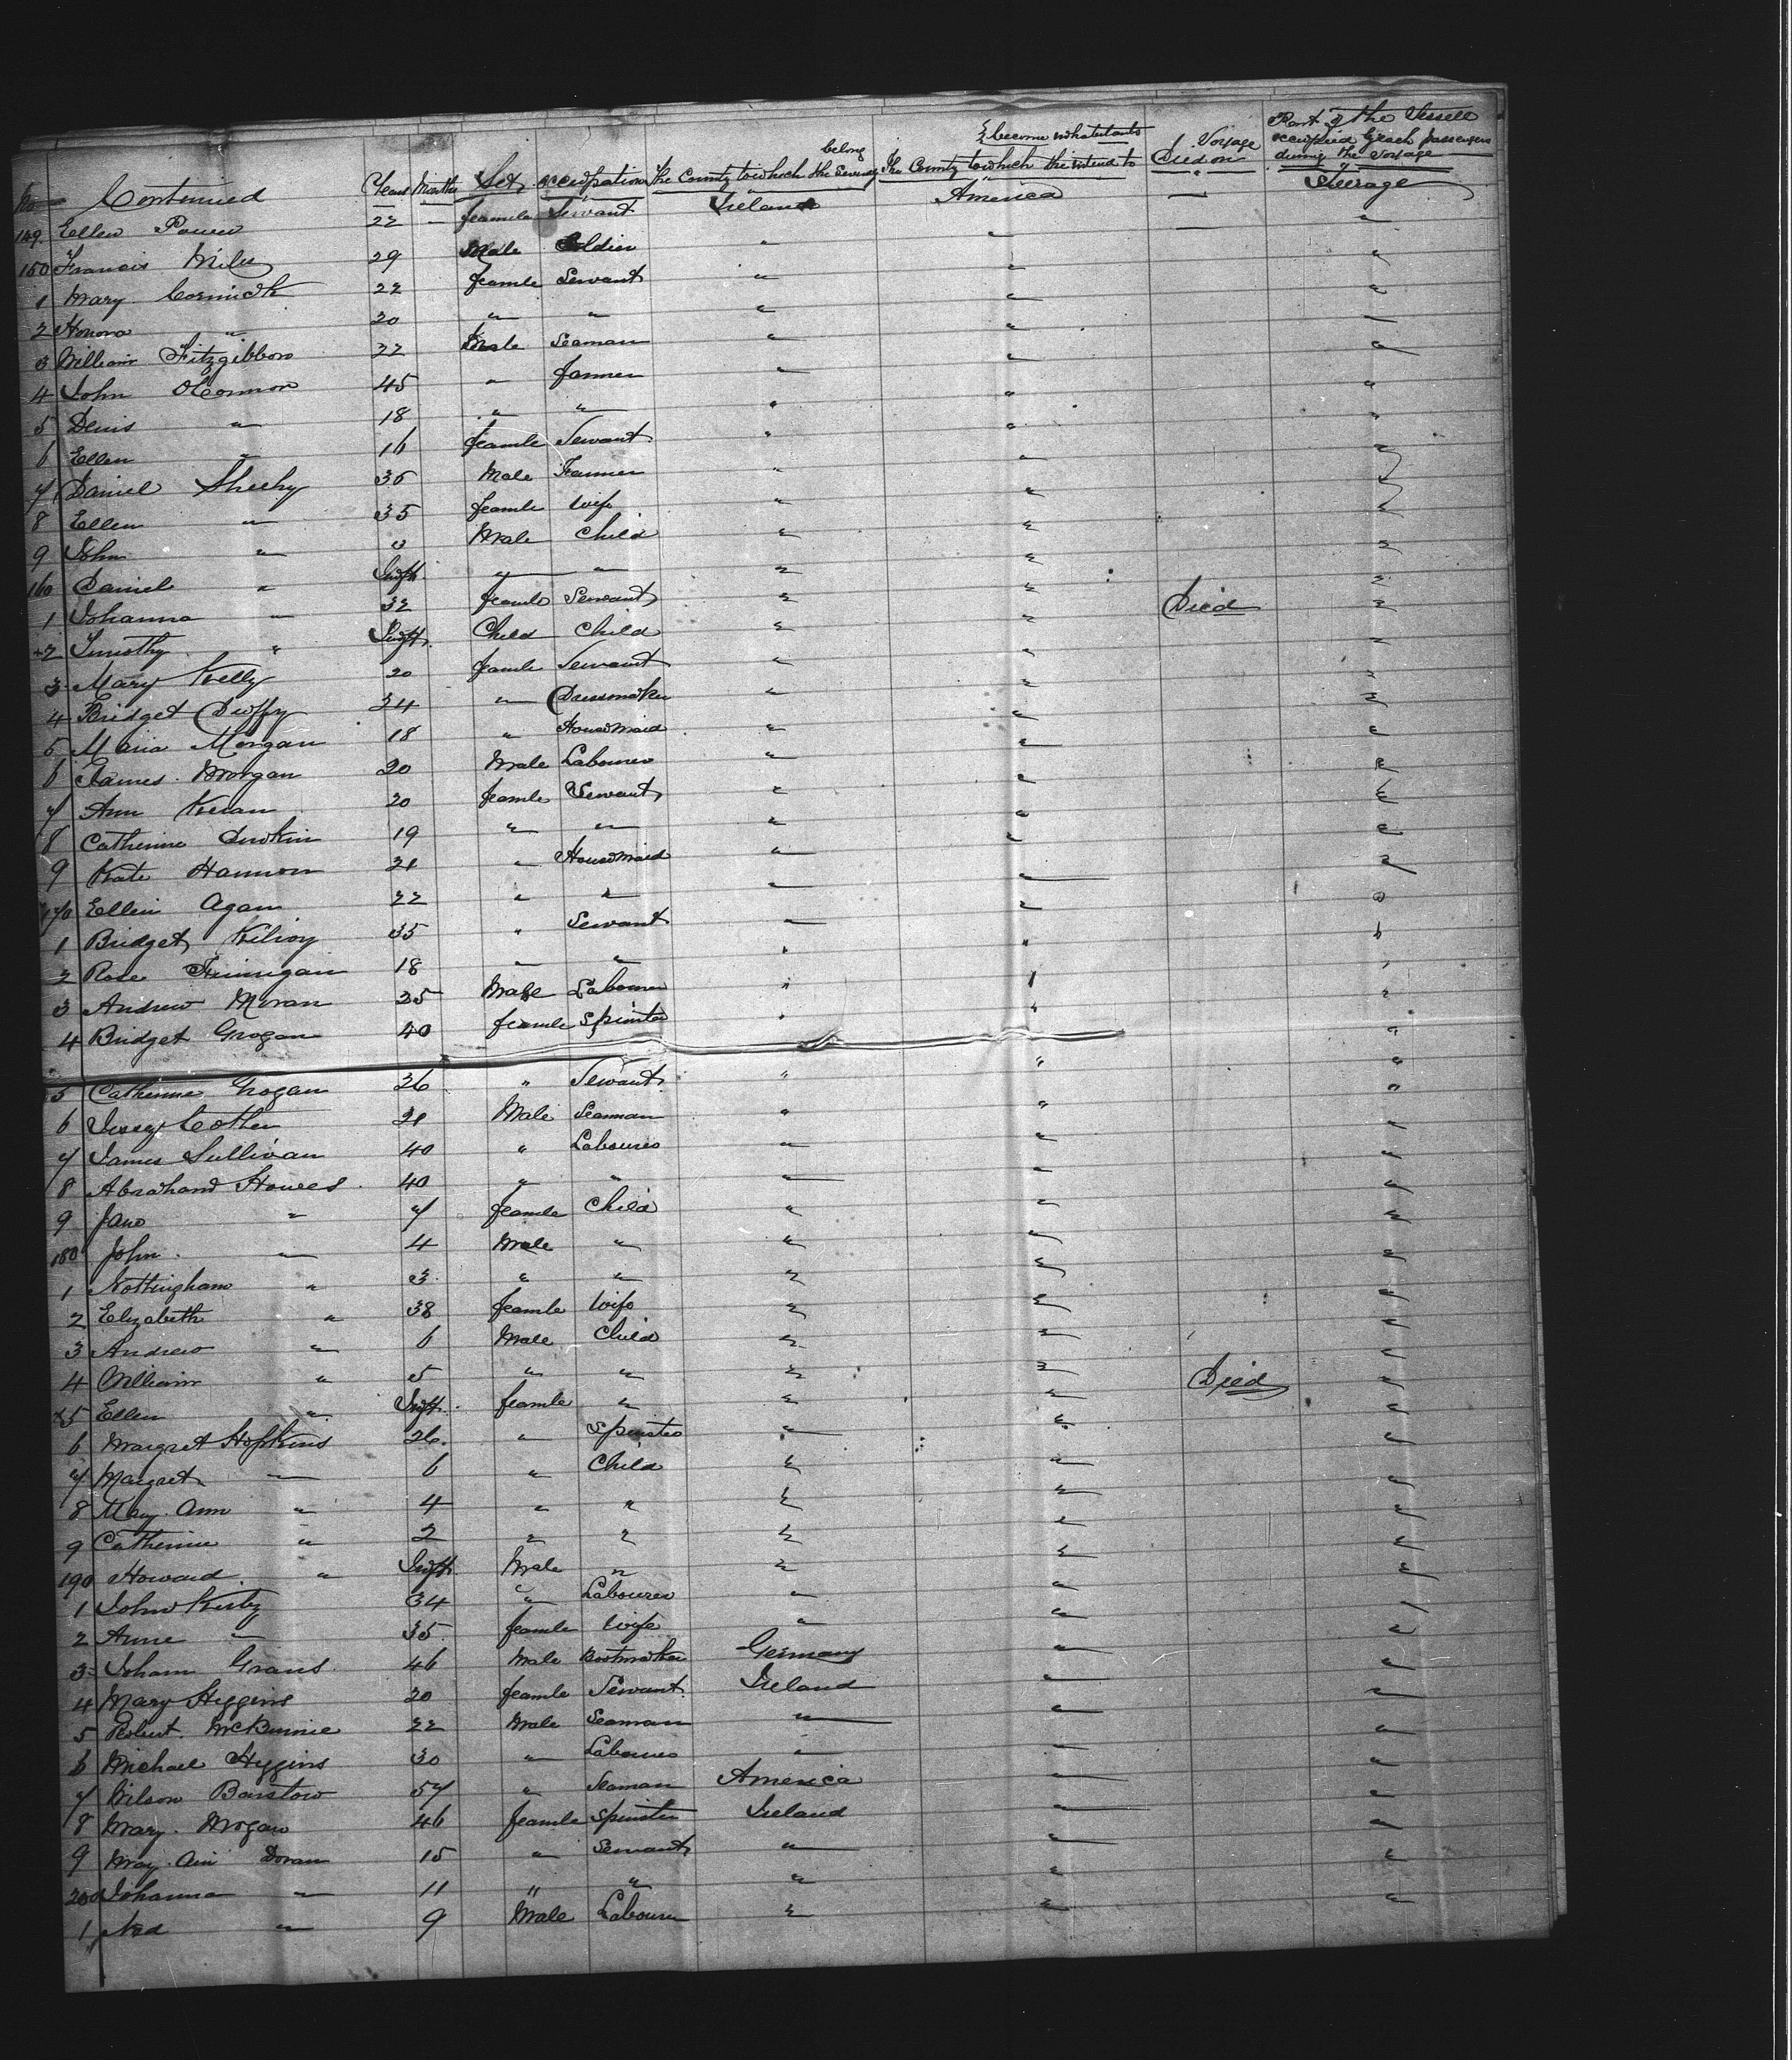 No Continued Years Months Sex occupation The County to which the Severaly belong The County to which the intend to become inhabitants Died on Voyage Part of the Vessele occupied Each passengers during the Voyage
149. Ellen Power 22 — feamle Servant Ireland America — Steerage
150 Francis Miles 29 Male Soldier " " — "
1 Mary Cormick 22 feamle Servant " " "
2 Honora " 20 " " " " "
3 William Fitzgibbon 22 Male Seaman " " "
4 John OConnor 45 " farmer " " "
5 Denis " 18 " " " " "
6 Ellen " 16 feamle Servant " " "
7 Daniel Sheehy 36 Male Farmer " " "
8 Ellen " 35 feamle wife " " "
9 John " 3 Male Child " " "
160 Daniel " Inft. " " " " "
1 Johanna " 32 feamle Servant " " "
+2 Timothy " Inft. Child Child " " Died "
3 Mary Kelly 20 feamle Servant " " "
4 Bridget Duffy 34 " Dressmaker " " "
5 Maria Morgan 18 " Housmaid " " "
6 James Morgan 20 Male Labourer " " "
7 Ann Kieran 20 feamle Servant " " "
8 Catherine Durkin 19 " " " " "
9 Kate Hannon 21 " Housmaid " " "
170 Ellen Agan 22 " " " " "
1 Bridget Kilroy 35 " Servant " " "
2 Rose Finnigan 18 " " " " "
3 Andrew Moran 25 Male Labourer " " "
4 Bridget Grogan 40 feamle Spinster " " "
5 Catherine Grogan 36 " Servant " " "
6 Cother 21 Male Seaman " " "
7 James Sullivan 40 " Labourer " " "
8 Abrahand Howes 40 " " " " "
9 Jane " 7 feamle Child " " "
180 John " 4 Male " " " "
1 Nottingham " 3 " " " " "
2 Elizabeth " 38 feamle wife " " "
3 Andrew " 6 Male Child " " "
4 William " 5 " " " " "
x5 Ellen " Inft. feamle " " " Died "
6 Margret Hopkins 26 " Spinster " " "
7 Margret " 6 " Child " " "
8 Mary Ann " 4 " " " " "
9 Catherine " 2 " " " " "
190 Howard " Inft Male " " " "
1 John Kirby 34 " Labourer " " "
2 Anne " 35 feamle wife " " "
3 Joham Grans 46 Male Bootmaker Germany " "
4 Mary Higgins 20 feamle Servant Ireland " "
5 Robert McBinnie 22 Male Seaman " " "
6 Michael Higgins 30 " Labourer " " "
7 Wilson Barstow 57 " Seaman America " "
8 Mary Mrogan 46 feamle Spinster Ireland " "
9 May Ann Doran 15 " Servant " " "
200 Johanna " 11 " " " " "
1 Ned " 9 Male Labourer " " "